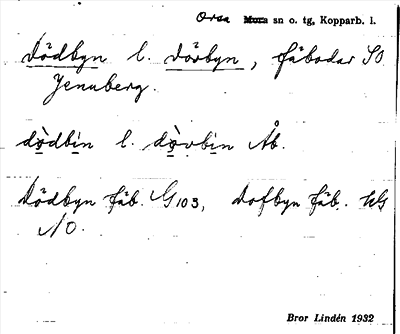 Orsa Mora sn o. tg, Kopparb. l.
Dödbyn l. Dövbyn, fäbodar SO
Jenuberg.
dò̱dbi̱n l. dò̱vbi̱n Åb.
Dödbyn fäb. G103, Dofbyn fäb. UG
NO.
Bror Lindén 1932